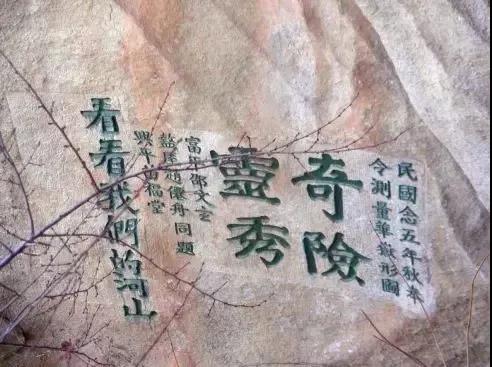 民國念五年秋奉
令測量華嶽形圖
奇險
靈秀
富平邵文
盩厔趙舟同題
興平福堂
看看我們的河山